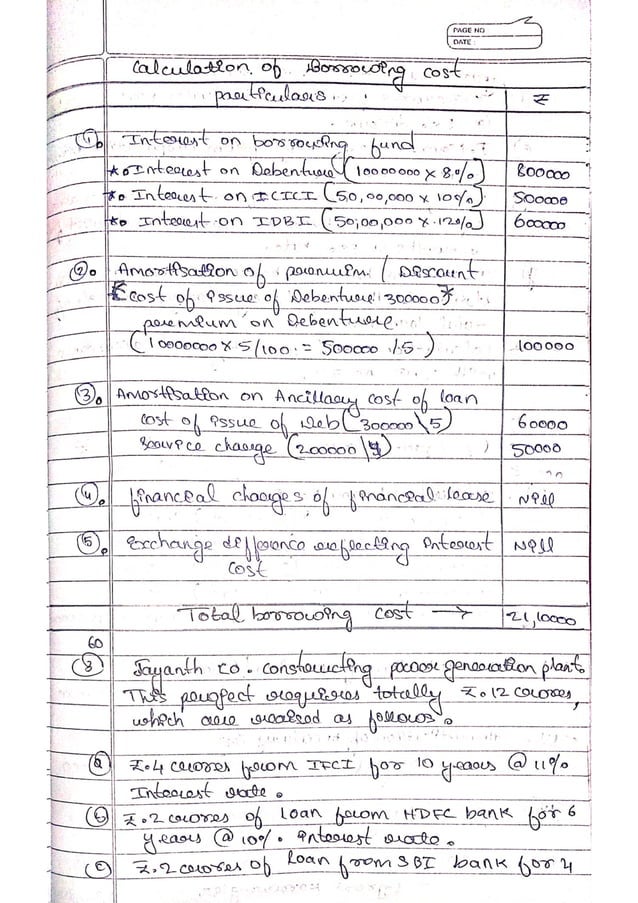 PAGE NO
DATE
Calculation of Borrowing cost
particulars ₹
① Interest on borrowing fund
* Interest on Debenture (10000000 x 8%) 800000
* Interest on ICICI (50,00,000 x 10%) 500000
* Interest on IDBI (50,00,000 x 12%) 600000
② Amortisation of premium / Discount
[cost of issue of Debenture 300000]
premium on Debenture
(10000000 x 5/100 = 500000 / 5) 100000
③ Amortisation on Ancillary cost of loan
cost of issue of Deb (300000\5) 60000
Service charge (200000\4) 50000
④ financial charges of financial lease Nill
⑤ Exchange difference reflecting interest Nill
cost
Total borrowing cost → 21,10000
60
⑧ Jayanth co. constructing power generation plant.
This project requires totally ₹.12 crores,
which are raised as follows.
ⓐ ₹.4 crores from IFCI for 10 years @ 11%
Interest rate.
ⓑ ₹.2 crores of loan from HDFC bank for 6
years @ 10%. interest rate.
ⓒ ₹.2 crores of loan from SBI bank for 4